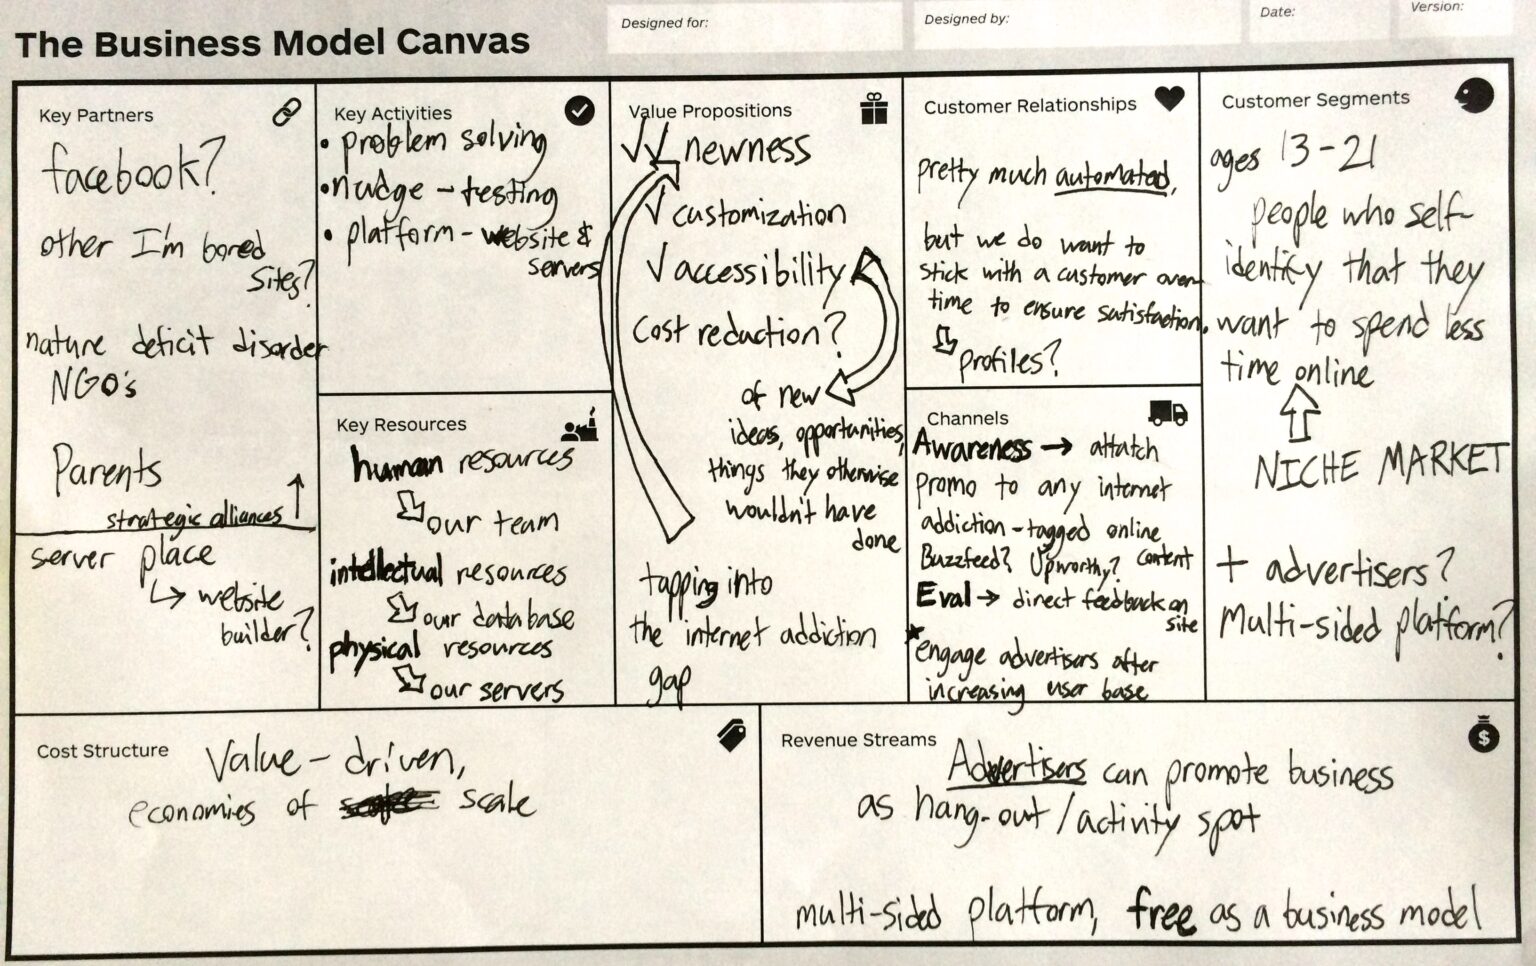 Designed for:
Designed by:
Date:
Version:
The Business Model Canvas
Key Partners
facebook?
other I'm bored
sites?
nature deficit disorder
NGO's
Parents
strategic alliances
server place
website
builder?
Key Activities
• problem solving
• nudge - testing
• platform - website &
servers
Key Resources
human resources
our team
intellectual resources
our database
physical resources
our servers
Value Propositions
newness
customization
accessibility
cost reduction?
of new
ideas, opportunities,
things they otherwise
wouldn't have
done
tapping into
the internet addiction
gap
Customer Relationships
pretty much automated,
but we do want to
stick with a customer over
time to ensure satisfaction.
profiles?
Channels
Awareness → attatch
promo to any internet
addiction - tagged online
content
Buzzfeed? Upworthy?
Eval → direct feedback on
site
* engage advertisers after
increasing user base
Customer Segments
ages 13-21
people who self-
identify that they
want to spend less
time online
NICHE MARKET
+ advertisers?
Multi-sided platform?
Cost Structure
Value - driven,
economies of scale
Revenue Streams
Advertisers can promote business
as hang-out / activity spot
multi-sided platform, free as a business model